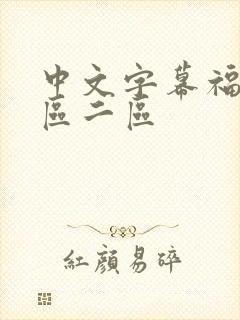 中文字幕福
區二區
紅顏易碎